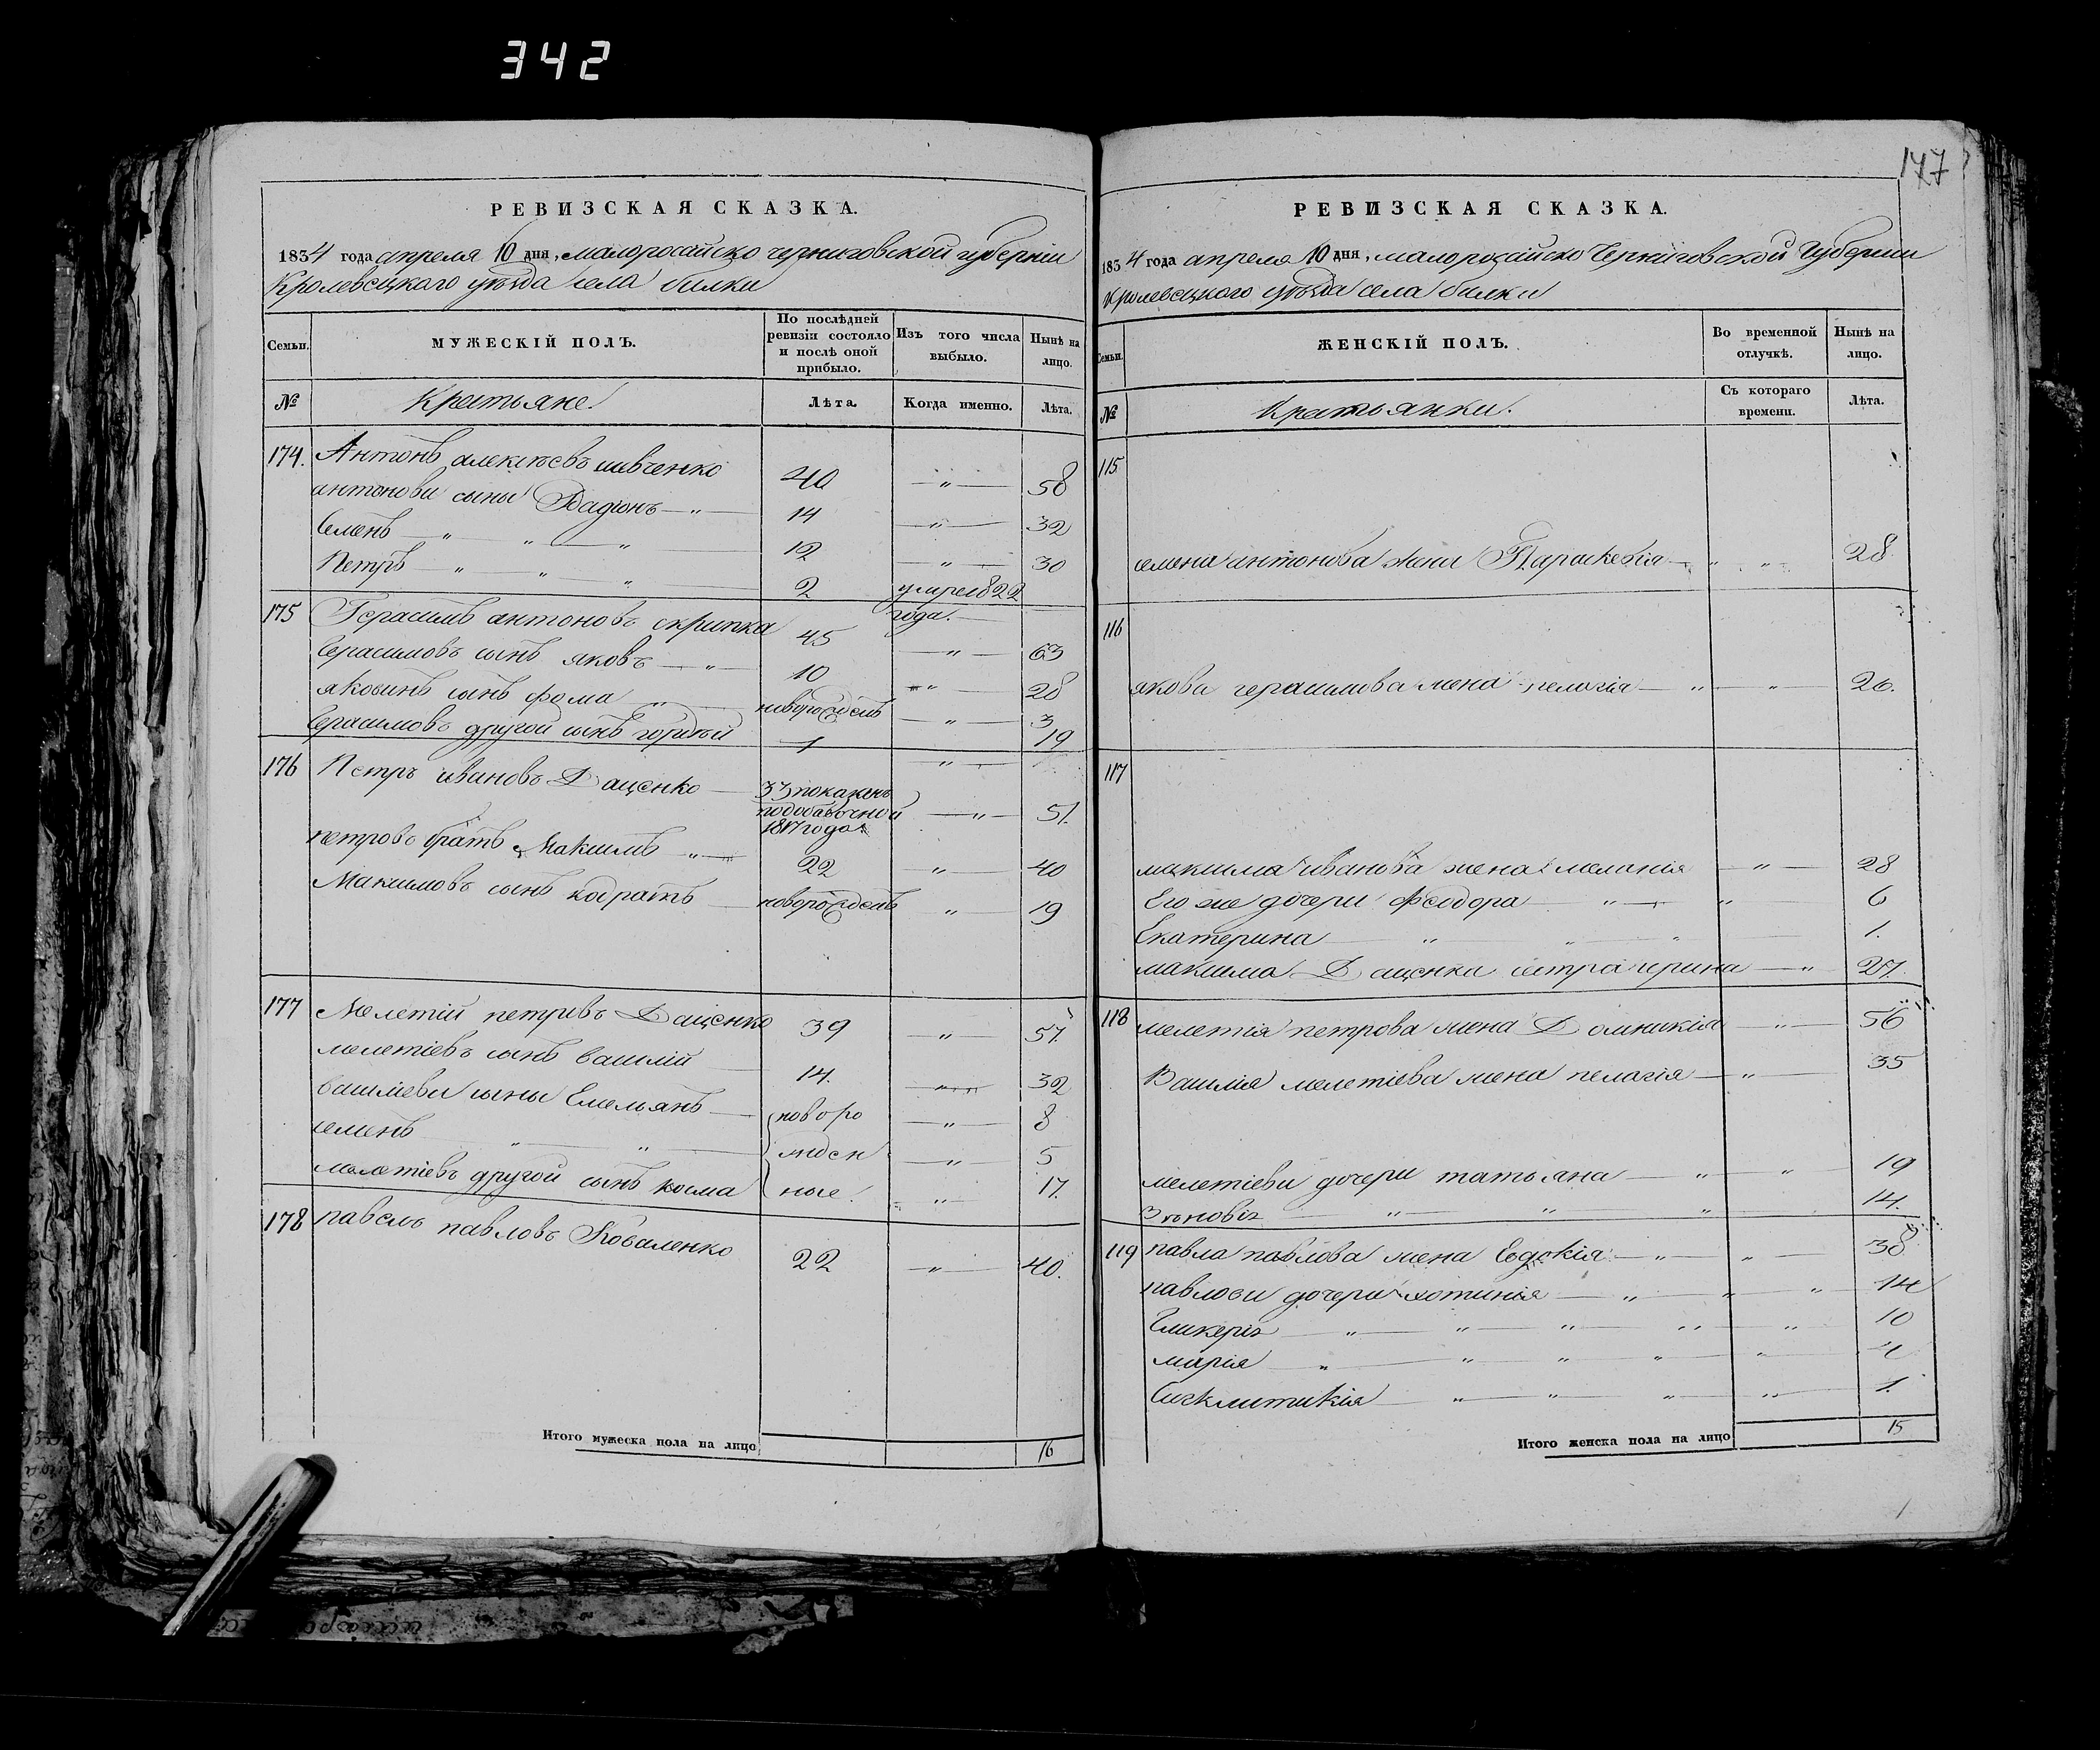 342
РЕВИЗСКАЯ СКАЗКА.
1834 года апреля 10 дня, малоросийско черниговской губерніи
Кролевецкаго уѣзда села билки
Семьи.
МУЖЕСКІЙ ПОЛЪ.
По послѣдней ревизіи состояло и послѣ оной прибыло.
Изъ того числа выбыло.
Нынѣ на лицо.
№ Крестьяне. Лѣта. Когда именно. Лѣта.
174. Антонъ алексѣевъ шевченко 40 — " — 58
антонови сыны Родионъ — " — 14 — " — 32
Семенъ — " — " — " — 12 — " — 30
Петръ — " — " — " — 2 умре 822 года.
175 Герасимъ антоновъ скрипка 45 — " — 63
Герасимовъ сынъ яковъ — " — 10 — " — 28
яковинъ сынъ фома — " — новорожденъ — " — 3
Герасимовъ другой сынъ гордѣй 1 — " — 19
176 Петръ ивановъ Даценко — 33 показанъ подобавочной 1817 года — " — 51.
петровъ братъ Максимъ — " — 22 — " — 40
Максимовъ сынъ кодратъ новорожденъ — " — 19
177 Мелетій петровъ Даценко 39 — " — 57.
мелетіевъ сынъ василій 14. — " — 32
василіеви сыны Емельянъ — новоро — " — 8
семенъ — " — " — жден — " — 5
мелетіевъ другой сынъ косма ные. — " — 17.
178 павелъ павловъ Коваленко 22 — " — 40.
Итого мужеска пола на лицо 16
177
РЕВИЗСКАЯ СКАЗКА.
1834 года апреля 10 дня, малоросийско Черниговской Губернии
Кролевецкого уѣзда села билки
Семьи.
ЖЕНСКІЙ ПОЛЪ.
Во временной отлучкѣ.
Нынѣ на лицо.
№ Крестьянки. Съ котораго времени. Лѣта.
115
семена антонова жена Параскевія — " — " — 28.
116
якова герасимова жена пелагія — " — " — 26.
117
максима иванова жена мелания — " — 28
Его же дочери Феодора — " — " — 6
Екатерина — " — " — " — 1.
максима Даценка сестра ирина — " — 27.
118 мелетія петрова жена Домникія — " — 56
Василія мелетіева жена пелагія — " — 35
мелетіеви дочери татьяна — " — " — 19
Зѣновія — " — " — " — 14.
119 павла павлова жена Евдокія — " — " — 38
павлови дочери хотинія — " — " — " — 14
Гликерія — " — " — " — " — " — 10
марія — " — " — " — " — " — 4
— " — " — " — " — 1.
Итого женска пола на лицо 15